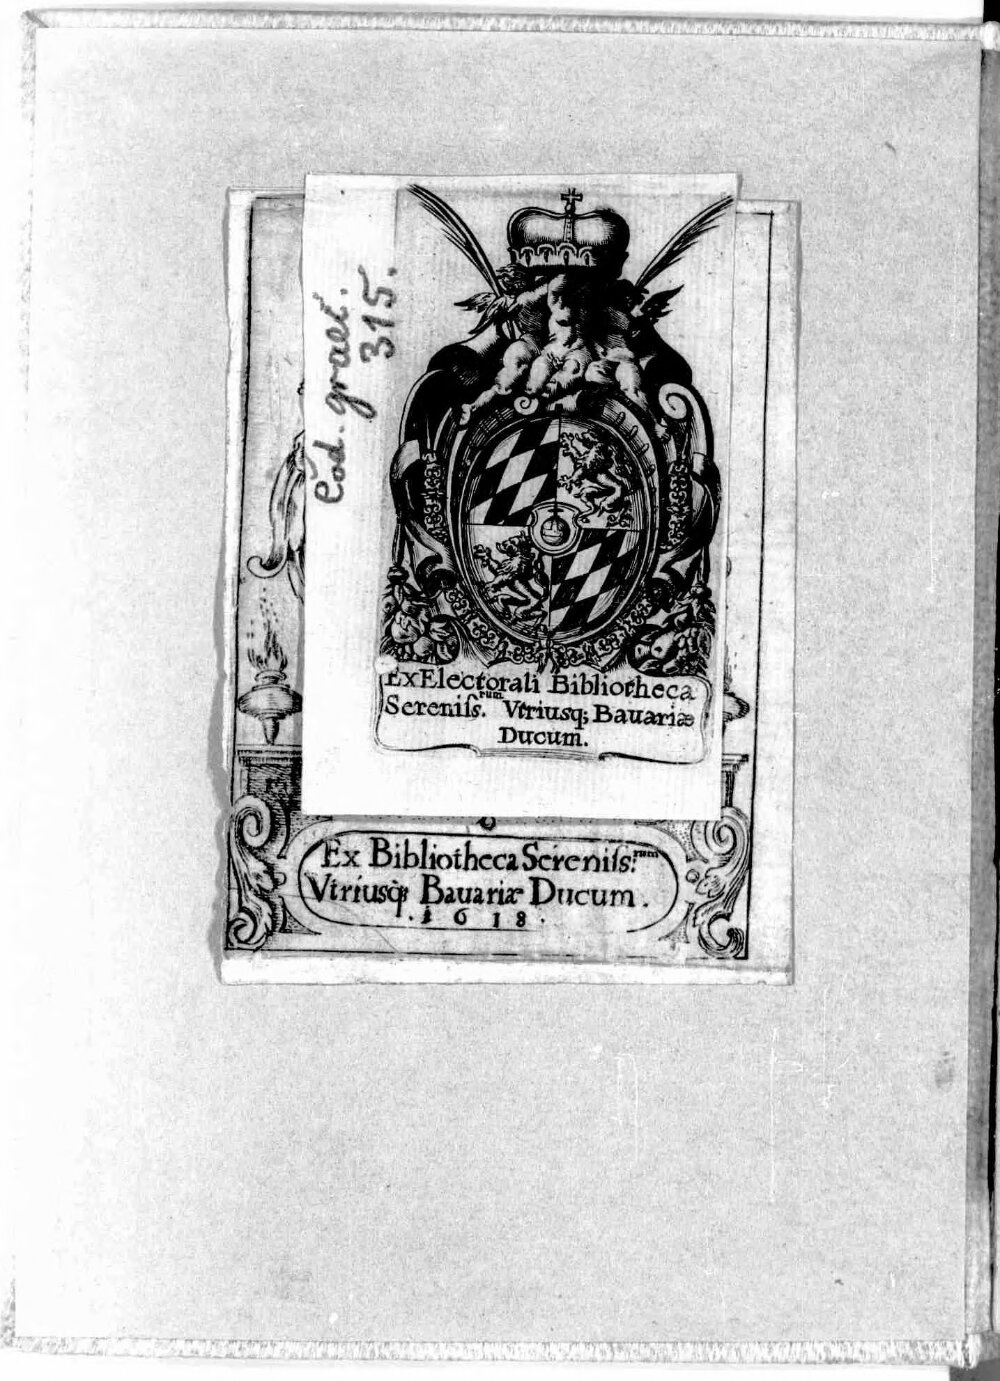 Cod. graec.
315.
Ex Electorali Bibliotheca
Sereniſs.rum Vtriusq; Bauariæ
Ducum.
Ex Bibliotheca Sereniſs:rum
Vtriusq; Bauariæ Ducum.
.1618.